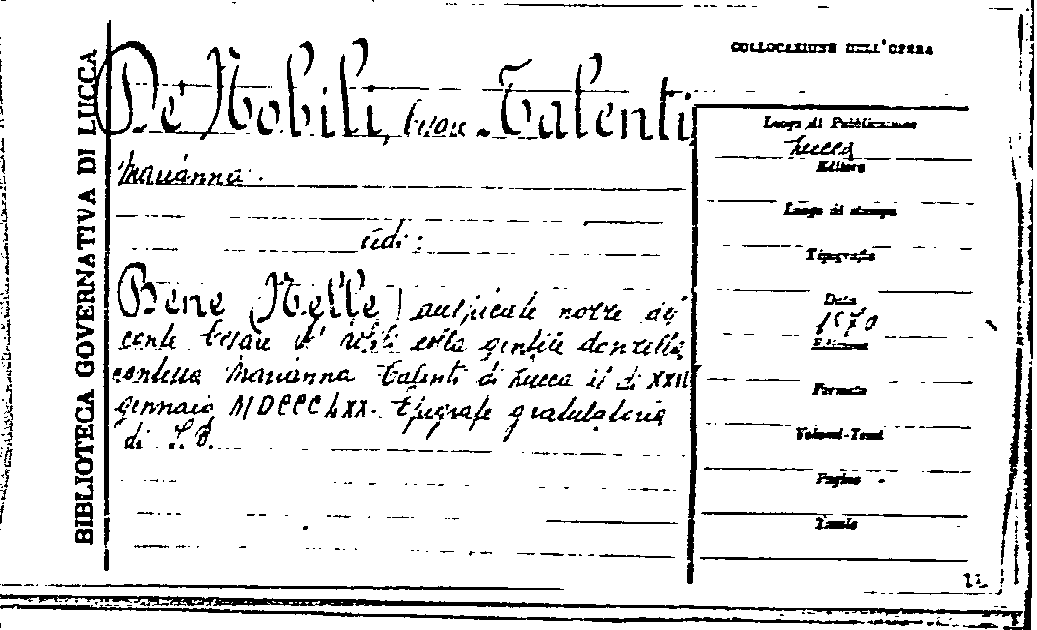 BIBLIOTECA GOVERNATIVA DI LUCCA
COLLOCAZIONE DELL'OPERA
De' Nobili, Cesare - Talenti,
Marianna.
vedi:
Bene (Nelle) auspicate nozze del
conte Cesare de' Nobili colla gentile donzella
contessa Marianna Talenti di Lucca il dì XXIII
gennaio MDCCCLXX. Epigrafe gratulatoria
di S. B.
Luogo di Pubblicazione
Lucca
Editore
Luogo di stampa
Tipografia
Data
1870
Edizione
Formato
Volumi-Tomi
Pagine
Tavole